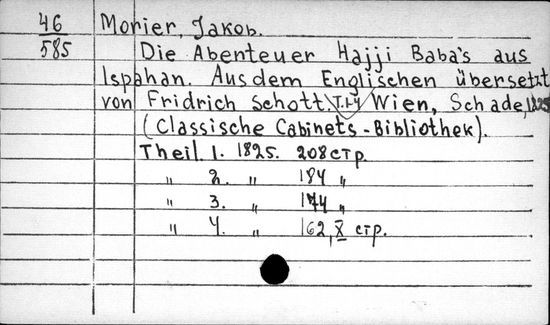 46
585
Morier, Jakob.
Die Abenteuer Hajji Baba's aus
Ispahan. Aus dem Englischen übersetzt
von Fridrich Schott. T.1-4 Wien, Schade, 1825
(Classische Cabinets-Bibliothek).
Theil. 1. 1825. 208 стр.
" 2. " 184 "
" 3. " 174 "
" 4. " 162, X стр.